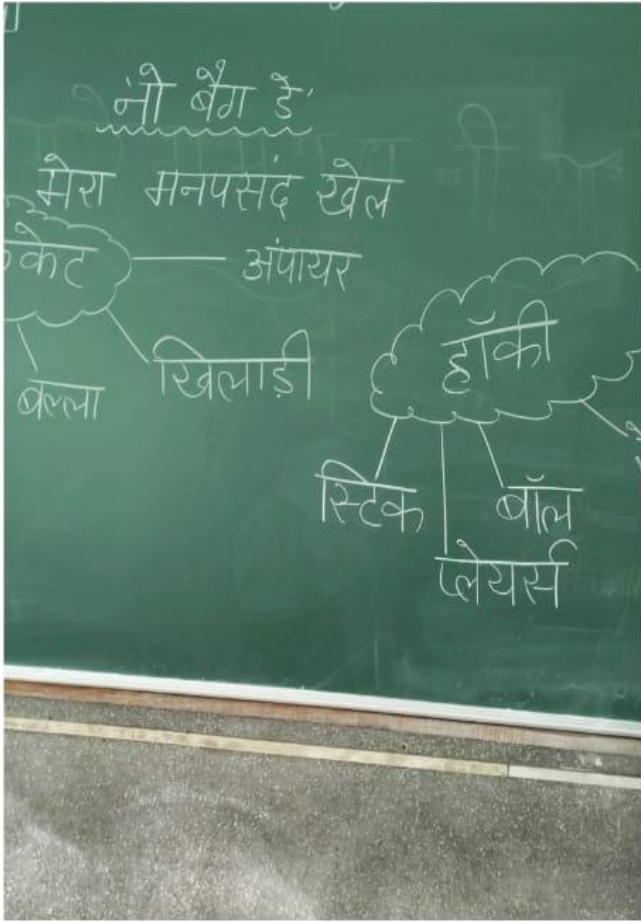 'नो बैग डे'
मेरा मनपसंद खेल
केट
अंपायर
खिलाड़ी
बल्ला
हॉकी
स्टिक
बॉल
प्लेयर्स